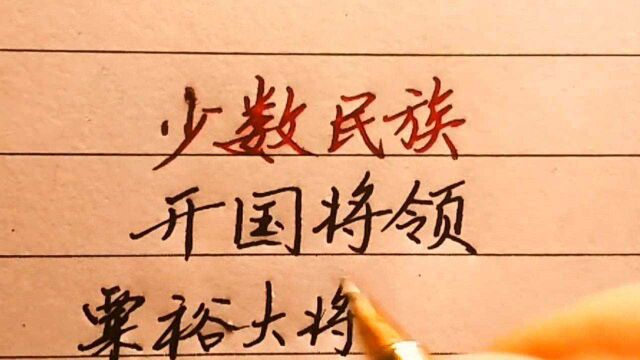 少数民族
开国将领
粟裕大将